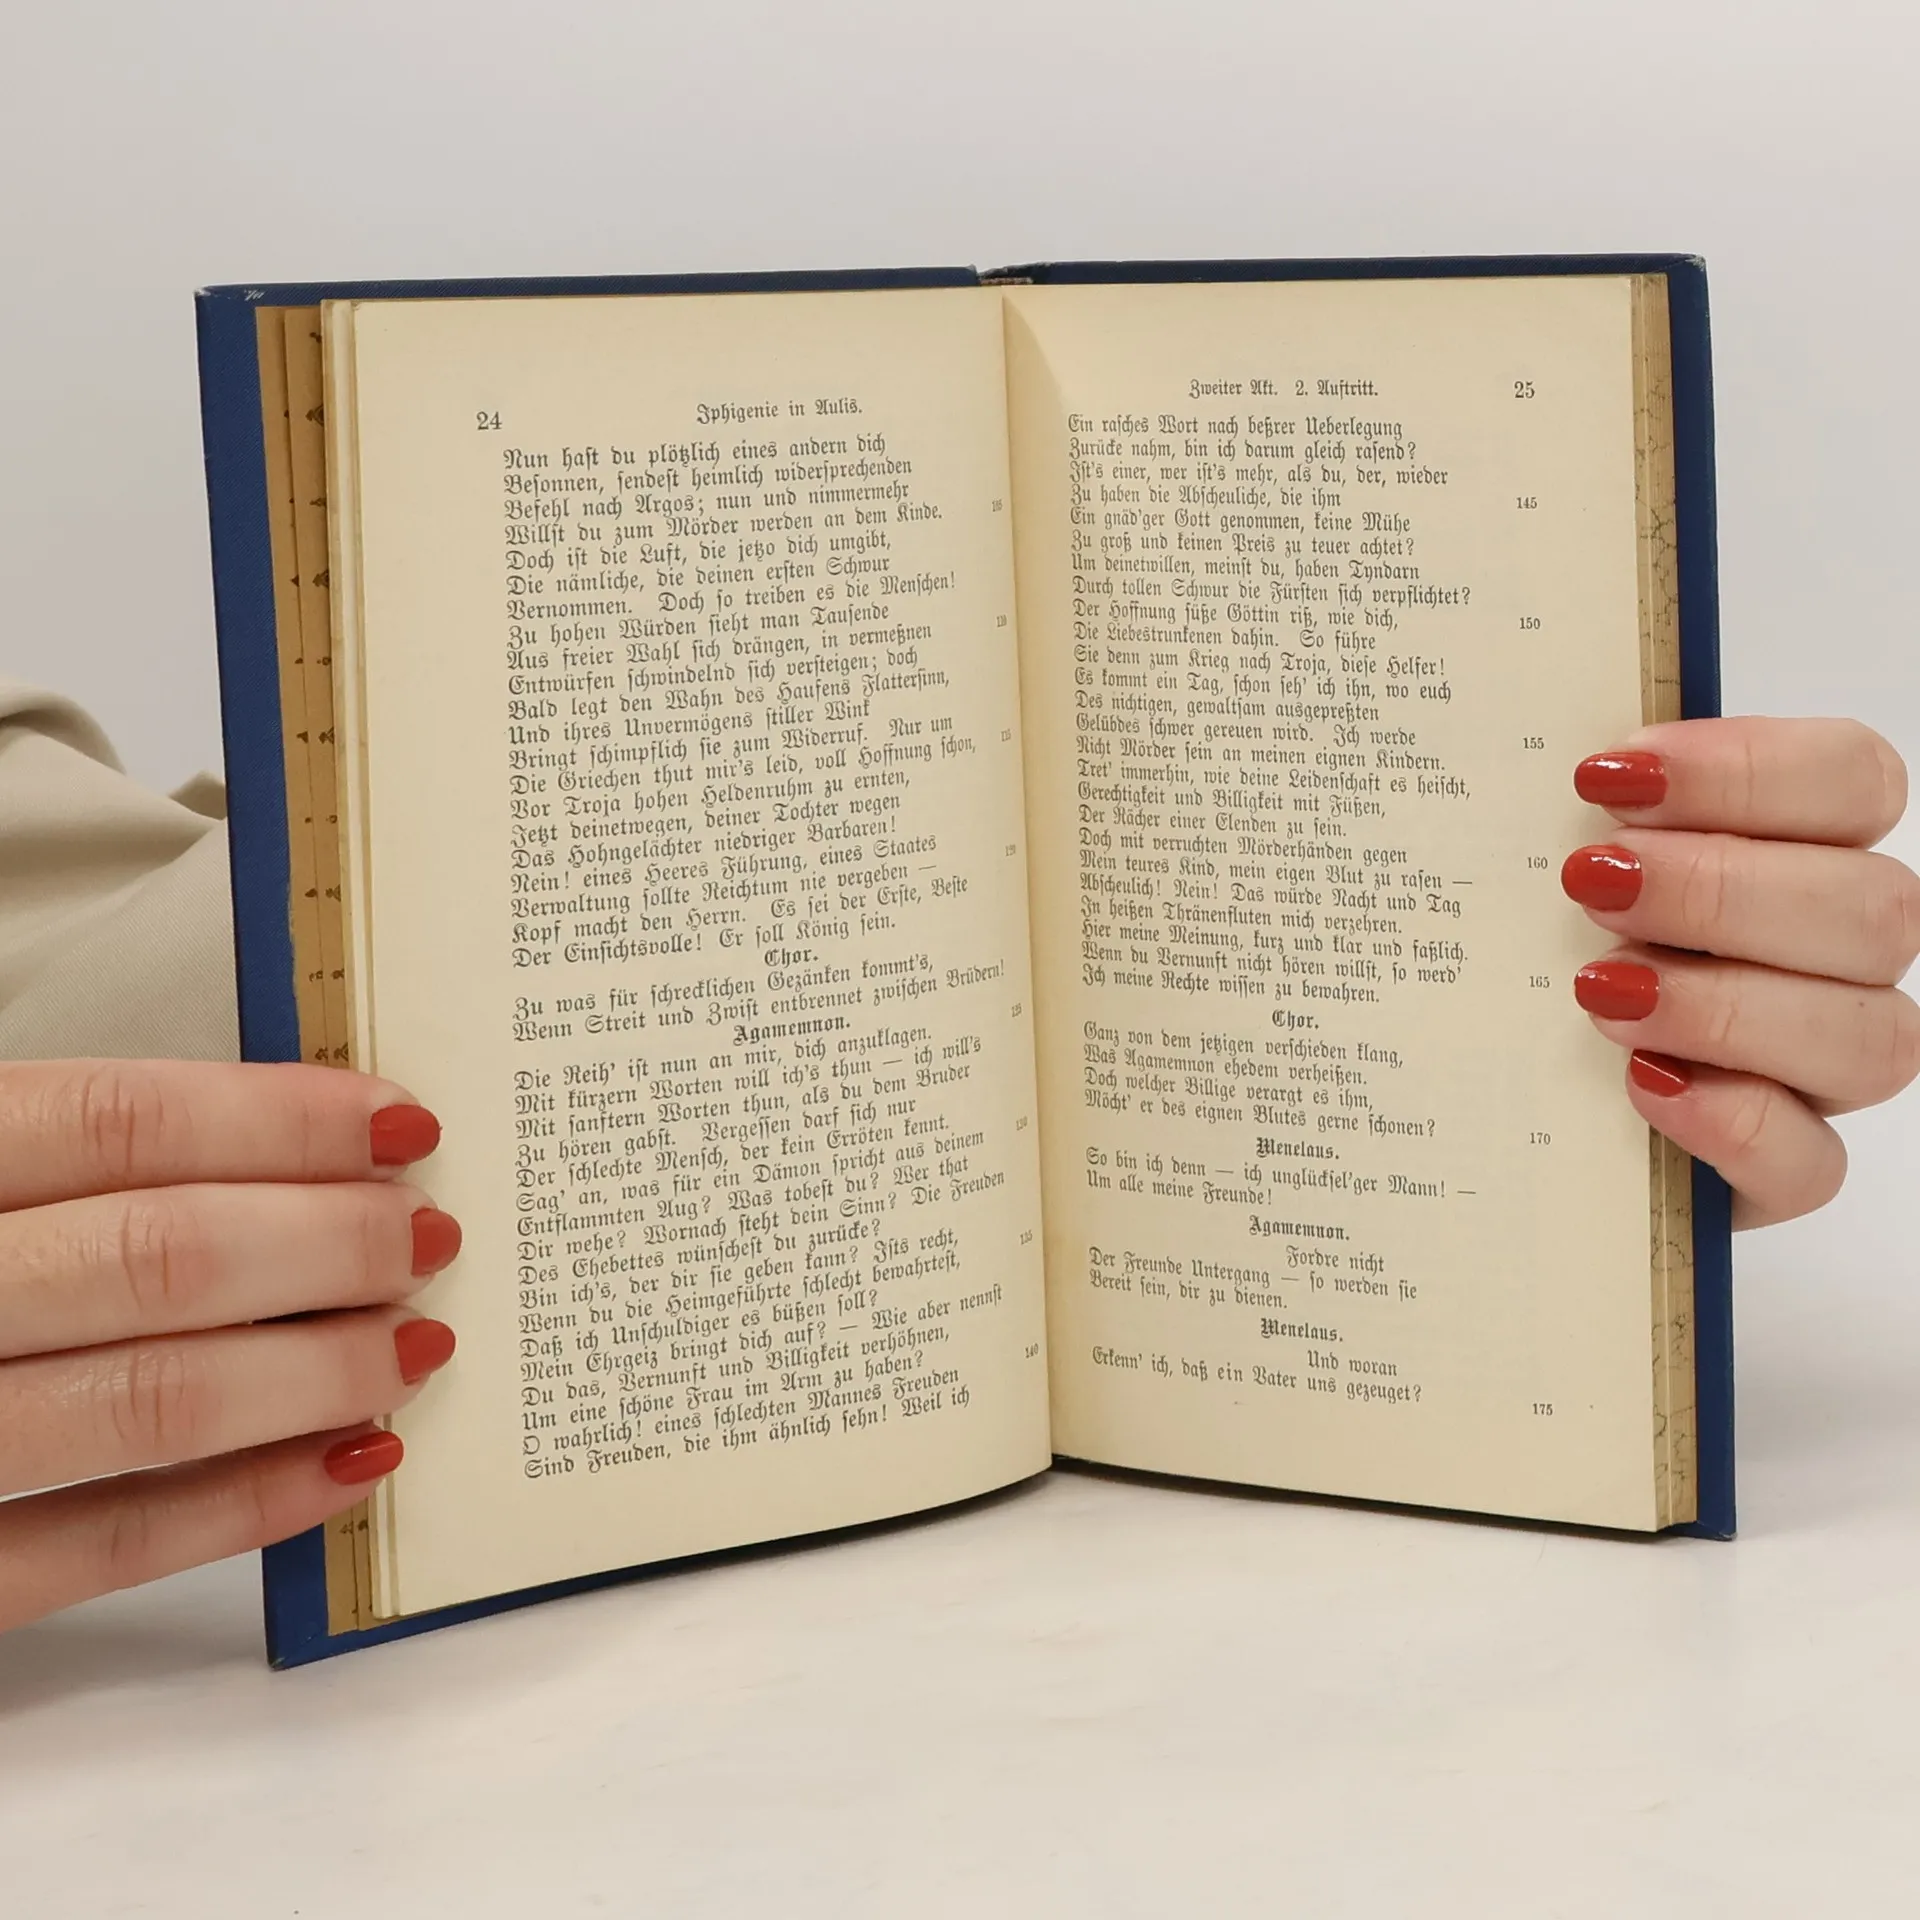 24 Iphigenie in Aulis.
Nun haſt du plötzlich eines andern dich
Beſonnen, ſendeſt heimlich widerſprechenden
Befehl nach Argos; nun und nimmermehr
Willſt du zum Mörder werden an dem Kinde. 105
Doch iſt die Luft, die jetzo dich umgibt,
Die nämliche, die deinen erſten Schwur
Vernommen. Doch ſo treiben es die Menſchen!
Zu hohen Würden ſieht man Tauſende
Aus freier Wahl ſich drängen, in vermeßnen 110
Entwürfen ſchwindelnd ſich verſteigen; doch
Bald legt den Wahn des Haufens Flatterſinn,
Und ihres Unvermögens ſtiller Wink
Bringt ſchimpflich ſie zum Widerruf. Nur um
Die Griechen thut mir's leid, voll Hoffnung ſchon, 115
Vor Troja hohen Heldenruhm zu ernten,
Jetzt deinetwegen, deiner Tochter wegen
Das Hohngelächter niedriger Barbaren!
Nein! eines Heeres Führung, eines Staates
Verwaltung ſollte Reichtum nie vergeben — 120
Kopf macht den Herrn. Es ſei der Erſte, Beſte
Der Einſichtsvolle! Er ſoll König ſein.
Chor.
Zu was für ſchrecklichen Gezänken kommt's,
Wenn Streit und Zwiſt entbrennet zwiſchen Brüdern!
Agamemnon.
Die Reih' iſt nun an mir, dich anzuklagen. 125
Mit kürzern Worten will ich's thun — ich will's
Mit ſanftern Worten thun, als du dem Bruder
Zu hören gabſt. Vergeſſen darf ſich nur
Der ſchlechte Menſch, der kein Erröten kennt.
Sag' an, was für ein Dämon ſpricht aus deinem 130
Entflammten Aug? Was tobeſt du? Wer that
Dir wehe? Wornach ſteht dein Sinn? Die Freuden
Des Ehebettes wünſcheſt du zurücke?
Bin ich's, der dir ſie geben kann? Iſts recht,
Wenn du die Heimgeführte ſchlecht bewahrteſt, 135
Daß ich Unſchuldiger es büßen ſoll?
Mein Ehrgeiz bringt dich auf? — Wie aber nennſt
Du das, Vernunft und Billigkeit verhöhnen,
Um eine ſchöne Frau im Arm zu haben?
O wahrlich! eines ſchlechten Mannes Freuden 140
Sind Freuden, die ihm ähnlich ſehn! Weil ich
Zweiter Akt. 2. Auftritt. 25
Ein raſches Wort nach beßrer Ueberlegung
Zurücke nahm, bin ich darum gleich raſend?
Iſt's einer, wer iſt's mehr, als du, der, wieder
Zu haben die Abſcheuliche, die ihm 145
Ein gnäd'ger Gott genommen, keine Mühe
Zu groß und keinen Preis zu teuer achtet?
Um deinetwillen, meinſt du, haben Tyndarn
Durch tollen Schwur die Fürſten ſich verpflichtet?
Der Hoffnung ſüße Göttin riß, wie dich, 150
Die Liebestrunkenen dahin. So führe
Sie denn zum Krieg nach Troja, dieſe Helfer!
Es kommt ein Tag, ſchon ſeh' ich ihn, wo euch
Des nichtigen, gewaltſam ausgepreßten
Gelübdes ſchwer gereuen wird. Ich werde 155
Nicht Mörder ſein an meinen eignen Kindern.
Tret' immerhin, wie deine Leidenſchaft es heiſcht,
Gerechtigkeit und Billigkeit mit Füßen,
Der Rächer einer Elenden zu ſein.
Doch mit verruchten Mörderhänden gegen 160
Mein teures Kind, mein eigen Blut zu raſen —
Abſcheulich! Nein! Das würde Nacht und Tag
In heißen Thränenfluten mich verzehren.
Hier meine Meinung, kurz und klar und faßlich.
Wenn du Vernunft nicht hören willſt, ſo werd' 165
Ich meine Rechte wiſſen zu bewahren.
Chor.
Ganz von dem jetzigen verſchieden klang,
Was Agamemnon ehedem verheißen.
Doch welcher Billige verargt es ihm,
Möcht' er des eignen Blutes gerne ſchonen? 170
Menelaus.
So bin ich denn — ich unglückſel'ger Mann! —
Um alle meine Freunde!
Agamemnon.
Fordre nicht
Der Freunde Untergang — ſo werden ſie
Bereit ſein, dir zu dienen.
Menelaus.
Und woran
Erkenn' ich, daß ein Vater uns gezeuget? 175